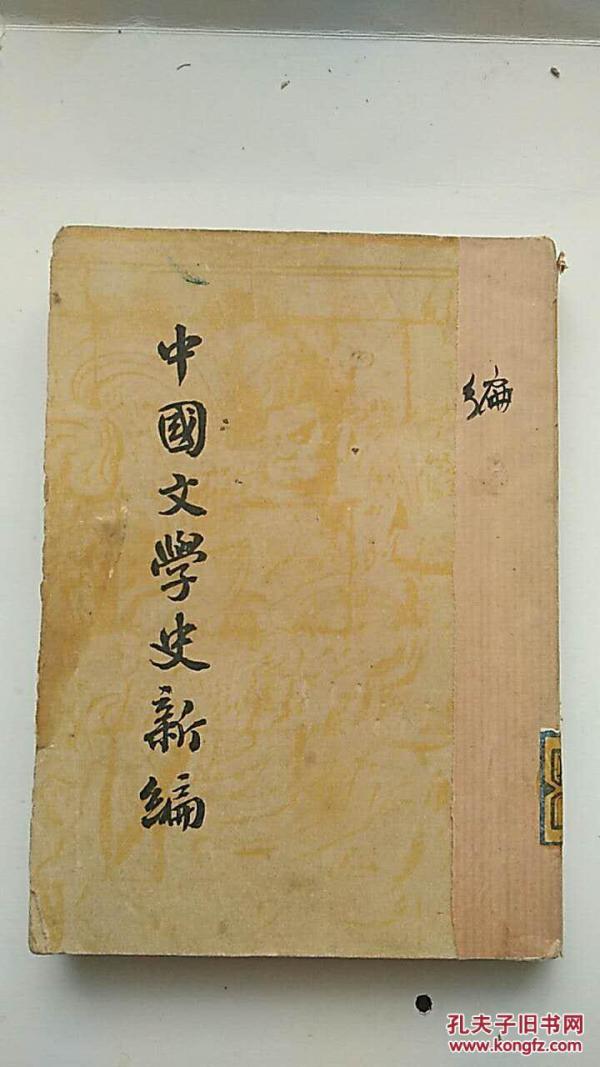 中國文學史新編
編
孔夫子旧书网
www.kongfz.com